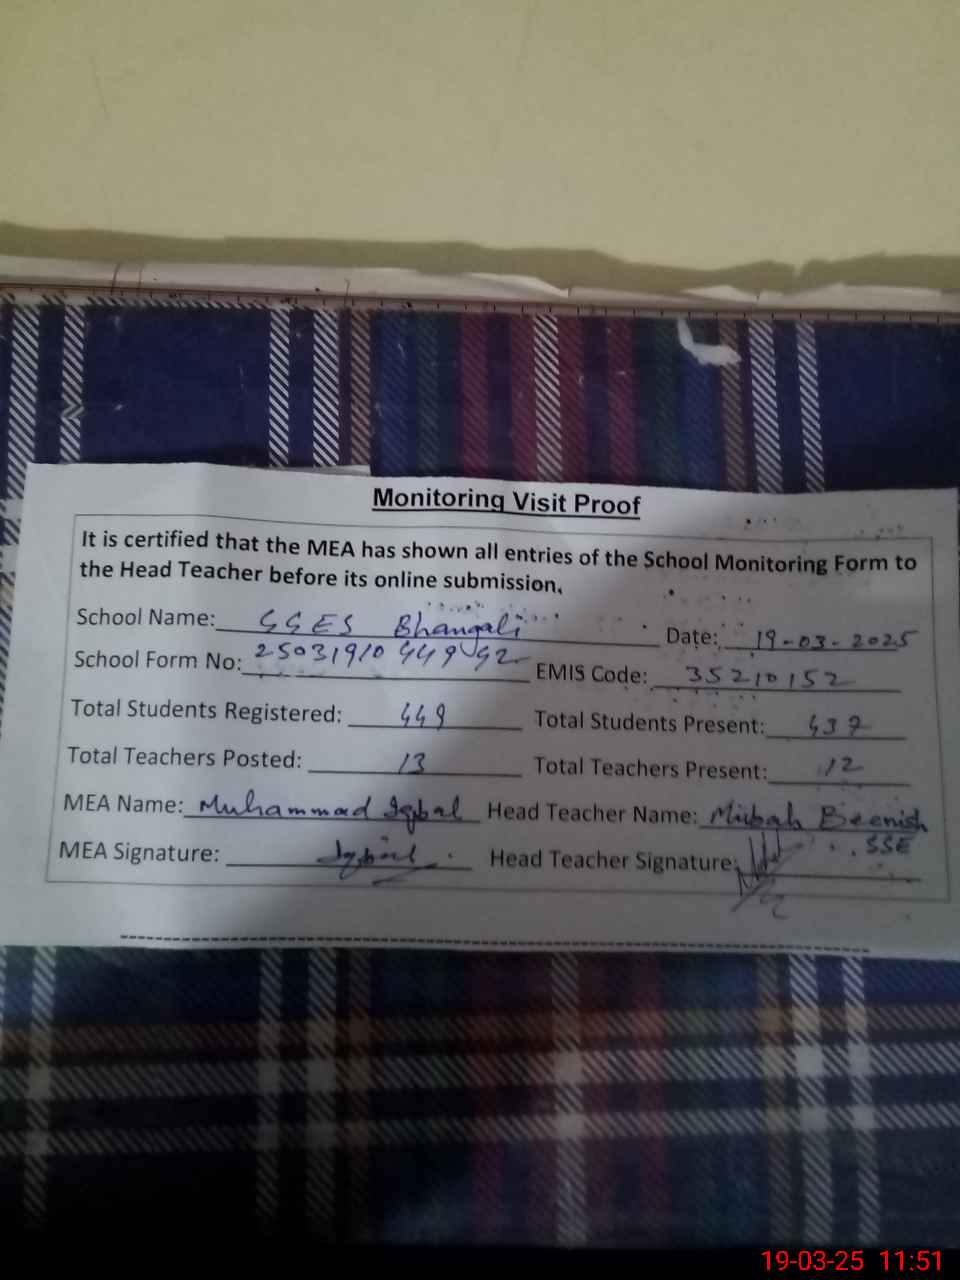 Monitoring Visit Proof
It is certified that the MEA has shown all entries of the School Monitoring Form to
the Head Teacher before its online submission.
School Name: GGES Bhangali Date: 19-03-2025
School Form No: 25031910 449 42 EMIS Code: 35210152
Total Students Registered: 449 Total Students Present: 437
Total Teachers Posted: 13 Total Teachers Present: 12
MEA Name: Muhammad Iqbal Head Teacher Name: Misbah Beenish
SSE
MEA Signature: Iqbal Head Teacher Signature:
19-03-25 11:51